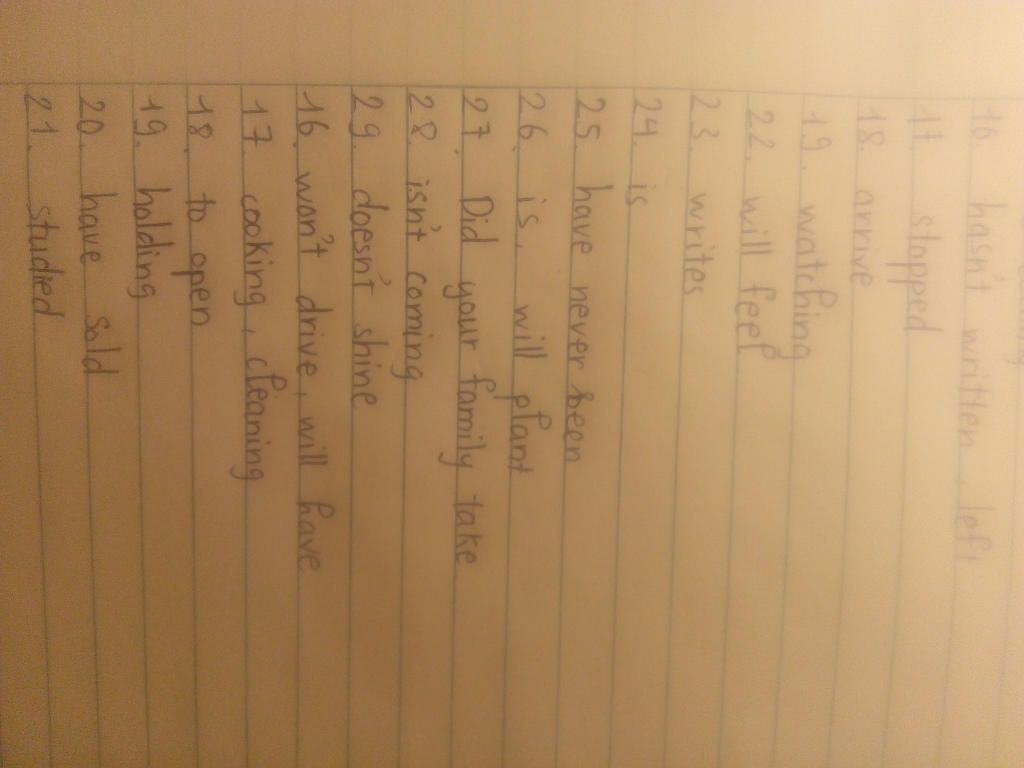 16. hasn't written, left
17. stopped
18. arrive
19. watching
22. will feel
23. writes
24. is
25. have never been
26. is, will plant
27. Did your family take
28. isn't coming
29. doesn't shine
16. won't drive, will have
17. cooking, cleaning
18. to open
19. holding
20. have sold
21. studied